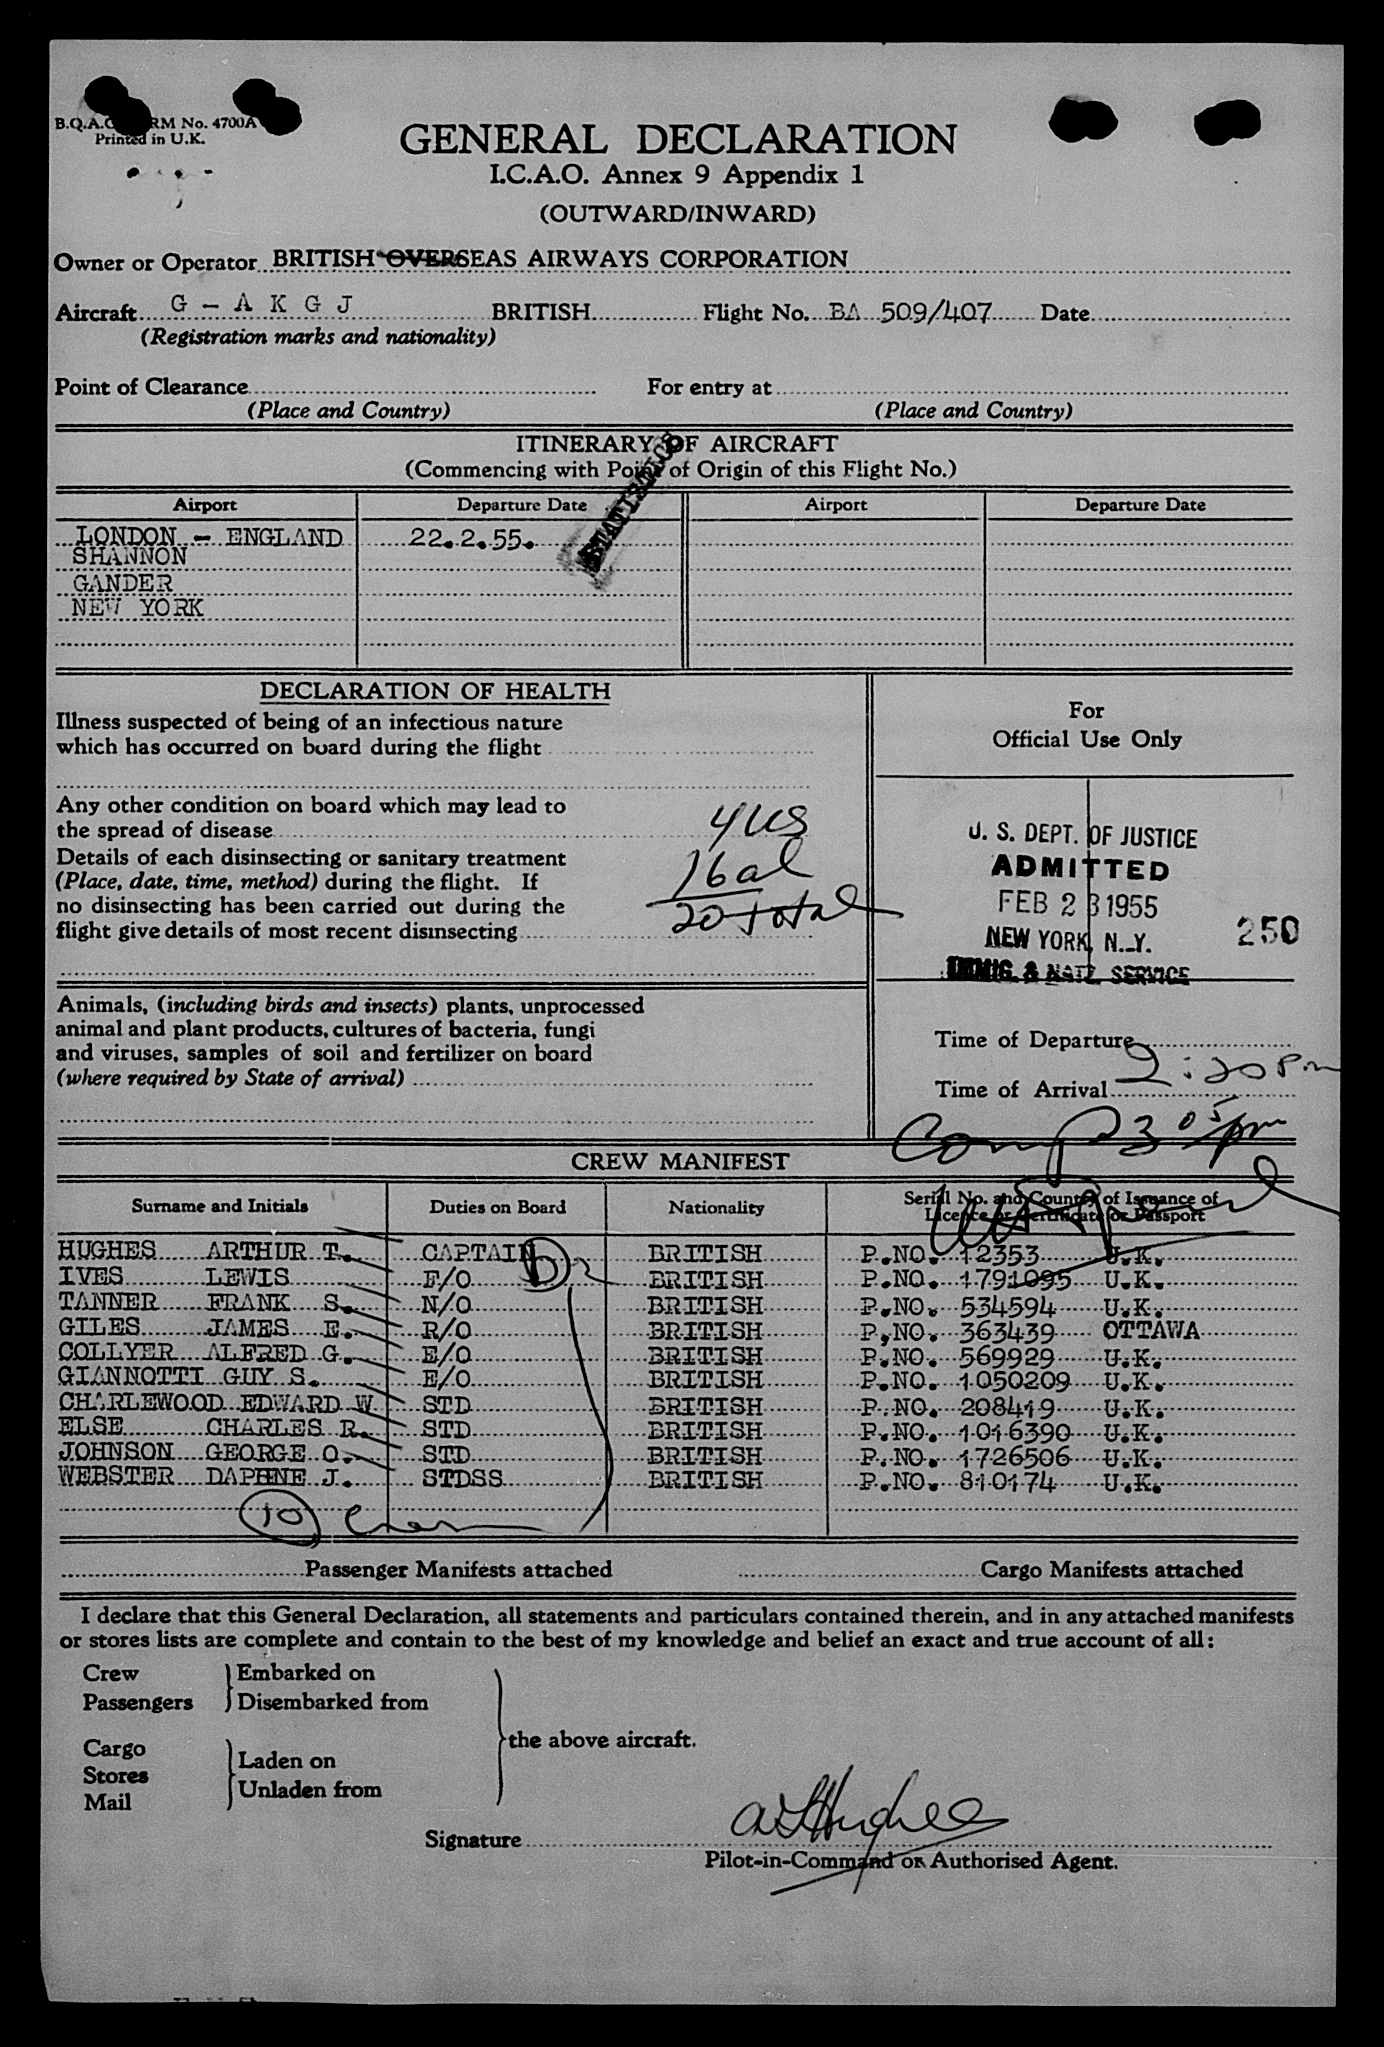 B.O.A.C. FORM No. 4700A
Printed in U.K.
GENERAL DECLARATION
I.C.A.O. Annex 9 Appendix 1
(OUTWARD/INWARD)
Owner or Operator BRITISH OVERSEAS AIRWAYS CORPORATION
Aircraft G - A K G J BRITISH Flight No. BA 509/407 Date
(Registration marks and nationality)
Point of Clearance For entry at
(Place and Country) (Place and Country)
ITINERARY OF AIRCRAFT
(Commencing with Point of Origin of this Flight No.)
STATISTICS
Airport Departure Date Airport Departure Date
LONDON - ENGLAND 22.2.55.
SHANNON
GANDER
NEW YORK
DECLARATION OF HEALTH
Illness suspected of being of an infectious nature
which has occurred on board during the flight
Any other condition on board which may lead to
the spread of disease 4 US
Details of each disinsecting or sanitary treatment
(Place, date, time, method) during the flight. If 16 al
no disinsecting has been carried out during the
flight give details of most recent disinsecting 20 total
Animals, (including birds and insects) plants, unprocessed
animal and plant products, cultures of bacteria, fungi
and viruses, samples of soil and fertilizer on board
(where required by State of arrival)
For
Official Use Only
U. S. DEPT. OF JUSTICE
ADMITTED
FEB 23 1955
NEW YORK, N. Y. 250
IMMIG. & NATZ. SERVICE
Time of Departure
Time of Arrival 2:20 PM
Comp 3 05 pm
CREW MANIFEST
Surname and Initials Duties on Board Nationality Serial No. and Country of Issuance of
Licence or Certificate or Passport
HUGHES ARTHUR T. CAPTAIN BRITISH P.NO. 12353 U.K.
IVES LEWIS F/O BRITISH P.NO. 1791095 U.K.
TANNER FRANK S. N/O BRITISH P.NO. 534594 U.K.
GILES JAMES E. R/O BRITISH P,NO. 363439 OTTAWA
COLLYER ALFRED G. E/O BRITISH P.NO. 569929 U.K.
GIANNOTTI GUY S. E/O BRITISH P.NO. 1050209 U.K.
CHARLEWOOD EDWARD W STD BRITISH P.NO. 208419 U.K.
ELSE CHARLES R. STD BRITISH P.NO. 1016390 U.K.
JOHNSON GEORGE O. STD BRITISH P.NO. 1726506 U.K.
WEBSTER DAPHNE J. STDSS BRITISH P.NO. 810174 U.K.
10 Crew
Passenger Manifests attached Cargo Manifests attached
I declare that this General Declaration, all statements and particulars contained therein, and in any attached manifests
or stores lists are complete and contain to the best of my knowledge and belief an exact and true account of all:
Crew Embarked on
Passengers Disembarked from
the above aircraft.
Cargo Laden on
Stores
Mail Unladen from
Signature A T Hughes
Pilot-in-Command or Authorised Agent.